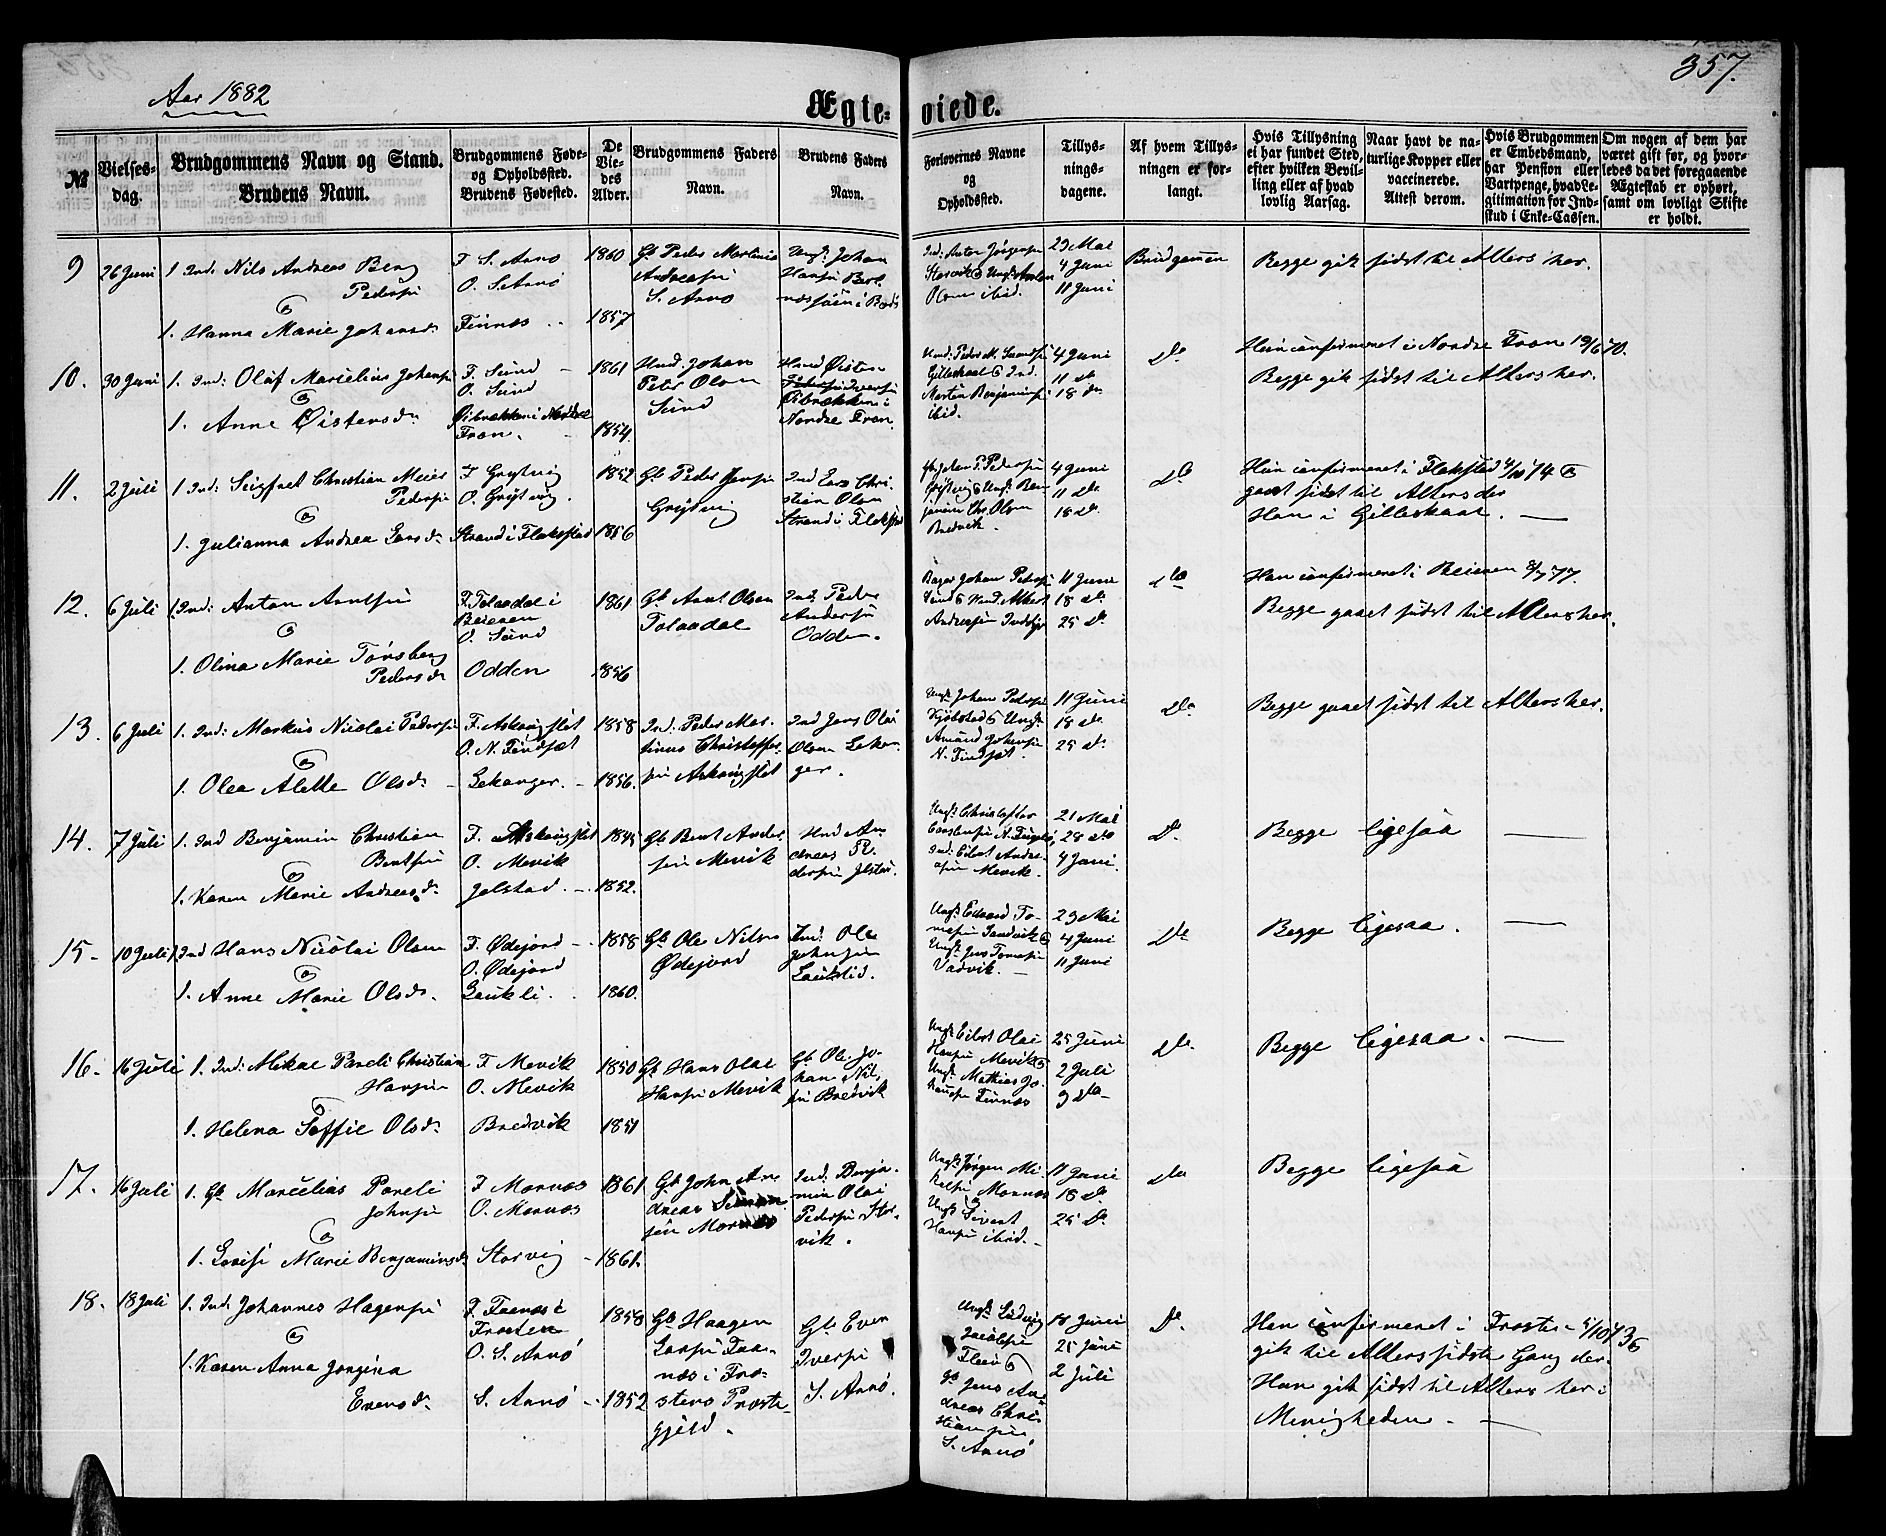 Aar 1882
357.
Ægteviede.
No
Vielses-
dag.
Brudgommens Navn og Stand.
Brudens Navn.
Brudgommens Føde-
og Opholdssted.
Brudens Fødested.
De
Vie-
des
Alder.
Brudgommens Faders
Navn.
Brudens Faders
Navn.
Forlovernes Navne
og
Opholdssted.
Tillys-
nings-
dagene.
Af hvem Tillys-
ningen er for-
langt.
Hvis Tillysning
ei har fundet Sted,
efter hvilken Bevil-
ling eller af hvad
lovlig Aarsag.
Naar havt de na-
turlige Kopper eller
vaccinerede.
Attest derom.
Hvis Brudgommen
er Embedsmand,
har Pension eller
Vartpenge, hvad Le-
gitimation for Ind-
skud i Enke-Cassen.
Om nogen af dem har
været gift før, og hvor-
ledes da det foregaaende
Ægteskab er ophørt,
samt om lovligt Skifte
er holdt.
9
26 Juni
1. Ind: Nils Andreas Berg
Pedersen
&
1. Hanna Marie Johansd.
F. S. Arnø
O. S. Arnø
Finnæs
1860
1857
Gb Peder Martinus
Andreasen
S. Arnø
Ungk. Johan
Hansen
i Bodø
Ind: Anton Jørgensen
Storvik & Ungk. Anton
Olsen ibid.
29 Mai
4 Juni
11 Juni
Brudgommen
Begge gik sidst til Alters her.
10.
30 Juni
1. Ind: Olaf Marcelius Johansen
&
1. Anne Øistensd.
F. Sund
O. Sund
Øibrækken i Nordre
Fron.
1861
1854.
Husd. Johan
Peter Olsen
Sund
Husd Øisten
Iversen
Øibrækken i
Nordre Fron.
Husd: Peder M.
Gilleskaal & Ind.
Morten Benjaminsen
ibid.
4 Juni
11 do
18 do
do
Hun confirmeret i Nordre Fron 19/6 70.
Begge gik sidst til Alters her.
11.
2 Juli
1. Ind: Seigfret Christian Meier
Pedersen
&
1. Julianna Andrea Larsd.
F. Grytvig
O. Grytvig.
Strand i Flakstad
1852
1856
Gb. Peder Jensen
Grytvig
Ind Lars Chri-
stian Olsen
Strand i Flakstad
P. Pedersen
Grytvig & Ungk Ben-
jamin Chr. Olsen
Bredvik.
4 Juni
11 do
18 do
do
Hun confirmeret i Flakstad 4/10 74 &
gaaet sidst til Alters der
Han i Gilleskaal.
12.
6 Juli
1. Ind: Anton Arntsen
&
1. Olina Marie Tønsberg
Pedersd.
F. Tolaadal i
Beieren
O. Sund
Odden
1861
1856
Gb Arnt Olsen
Tolaadal
Ind. Peder
Andersen
Odden.
Johan Pedersen
Sund & Husd. Albert
Andreasen
11 Juni
18 do
25 do
do
Han confirmeret i Beieren 8/7 77.
Begge gaaet sidst til Alters her.
13.
6 Juli
1. Ind: Markus Nicolai Pedersen
&
1. Olea Alette Olsd.
F. Askougslet
O. N. Findsæt
Lekanger.
1858
1856.
Ind. Peder Mar-
tinus Christoffer-
sen Askougslet
Ind Jens Olai
Olsen Lekan-
ger.
Ungk Johan Pedersen
Kjøbstad & Ungk.
Amund Johansen
N. Findsæt.
11 Juni
18 do
25 do
Do
Begge gaaet sidst til Alters her.
14.
7 Juli
1. Ind Benjamin Christian
Bentsen
&
1. Karen Marie Andreasd.
F. Askougslet
O. Mevik
Jelstad.
1845
1852.
Gb Bent Ander-
sen Mevik
Husd An-
dreas Pe-
dersen Jelstad.
Ungk Christoffer
Carstensen N. Fugelø,
Ind: Eilert Andre-
asen Mevik.
21 Mai
28 do
4 Juni.
Do
Begge ligesaa
15.
10 Juli
1. Ind Hans Nicolai Olsen
&
1. Anne Marie Olsd.
F. Ødejord
O. Ødejord
Leukli.
1858
1860.
Gb Ole Nilsen
Ødejord
Ind. Ole
Johnsen
Leuklid.
Ungk Edvard To-
mesen Sandvik &
Ungk Jens Tomesen
Vadvik.
29 Mai
4 Juni
11 Juni
Do
Begge ligesaa.
16.
16 Juli
1. Ind: Mikal Pareli Christian
Hansen
&
1. Helena Soffie Olsd.
F. Mevik
O. Mevik
Bredvik
1850
1851
Gb Hans Olai
Hansen Mevik
Gb Ole Jo-
han Nil-
sen Bredvik
Ungk Eilert Olai
Hansen Mevik &
Ungk Mathias Jo-
hansen Finnæs
25 Juni
2 Juli
9 do
Do
Begge ligesaa.
17.
16 Juli
1. Gb Marcelius Pareli
Johnsen
&
1. Lovise Marie Benjaminsd.
F. Mornæs
O. Mornæs
Storvig
1861
1861.
Gb John An-
dreas Simon-
sen Mornæs
Ind: Benja-
min Olai
Pedersen Stor-
vik.
Ungk Jørgen Mi-
kelsen Mornæs
Ungk Sivert
Hansen ibid.
11 Juni
18 do
25 do
do
Begge ligesaa
18.
18 Juli
1. Ind. Johannes Hagensen
&
1. Karen Anna Jorgina
Evensd.
F. Faanæs i
Frosten
O. S. Arnø
S. Arnø
1858
1852
Gb Haagen
Larsen Faa-
næs i Fro-
stens Præste-
gjeld.
Gb Even
Iversen
S. Arnø.
Ungk Ludvig
Jacobsen
&
Gb Jens An-
dreas Chri-
stiansen
S. Arnø
18 Juni
25 Juni
2 Juli
Do
Han confirmeret i Frosten 5/10 73 &
gik til Alters sidste Gang der.
Hun gik sidst til Alters her i
Menigheden.